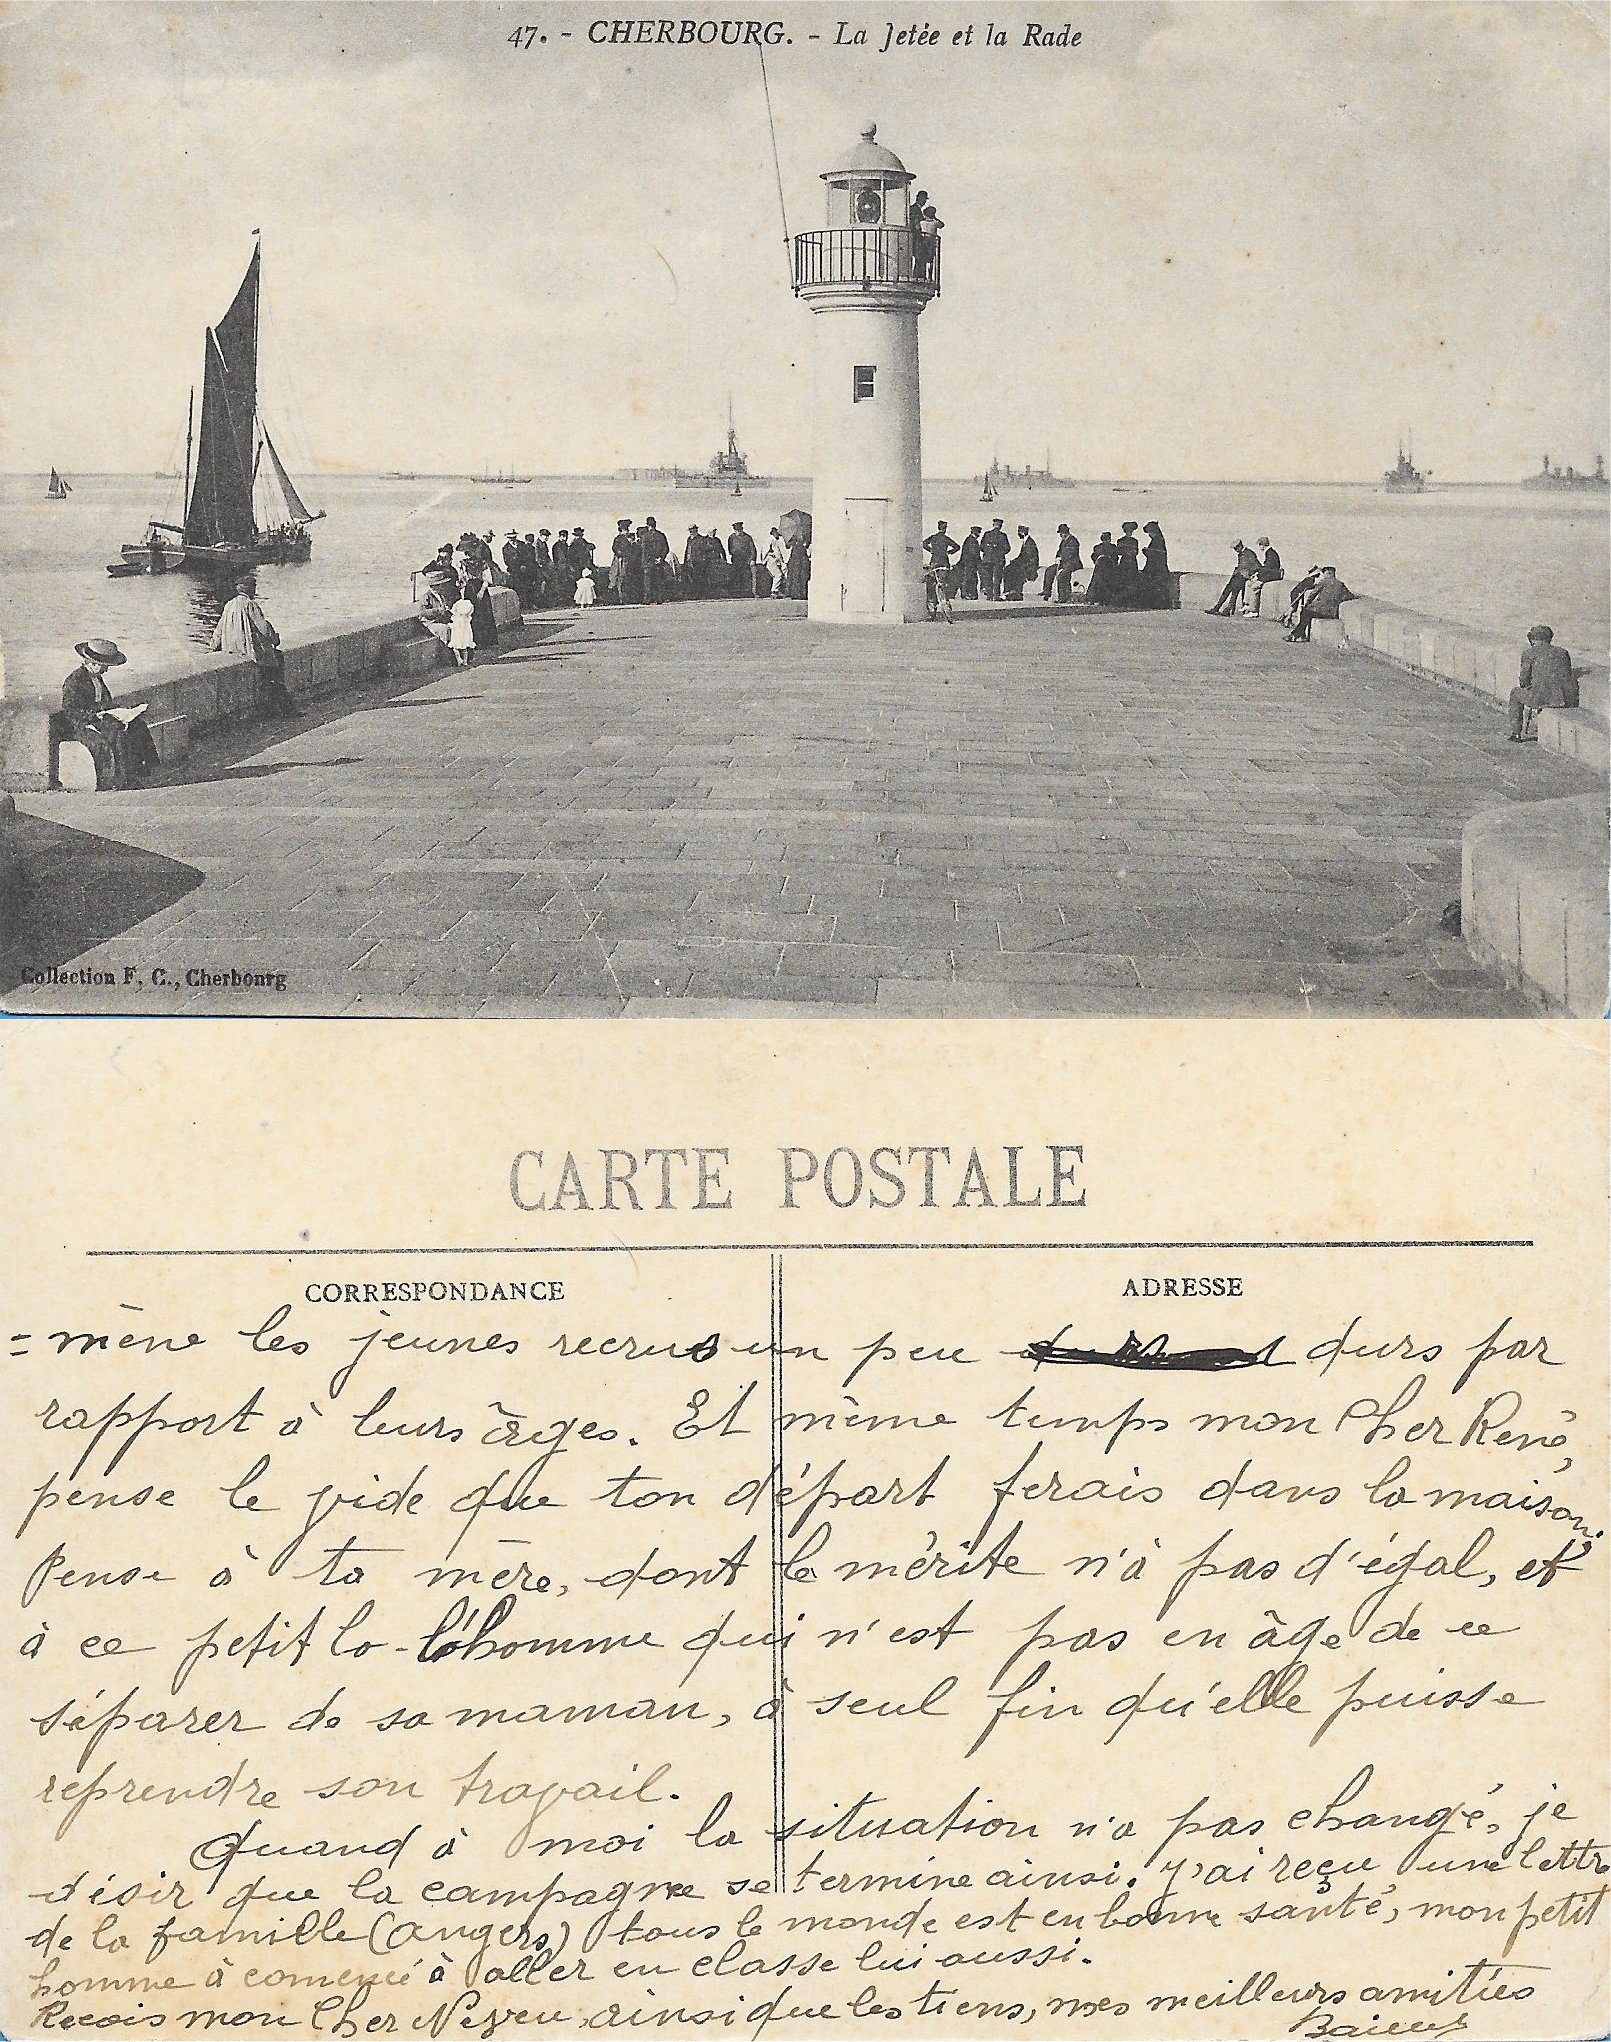 47. - CHERBOURG. - La Jetée et la Rade
Collection F. C., Cherbourg
CARTE POSTALE
CORRESPONDANCE
ADRESSE
= mène les jeunes recrus un peu durs par
rapport à leurs âges. Et même temps mon Cher René,
pense le vide que ton départ ferais dans la maison.
Pense à ta mère, dont le mérite n'à pas d'égal, et
à ce petit lo-lo homme qui n'est pas en âge de ce
séparer de sa maman, à seul fin qu'elle puisse
reprendre son travail.
Quand à moi la situation n'a pas changé, je
désir que la campagne se termine ainsi. J'ai reçu une lettre
de la famille (Angers) tous le monde est en bonne santé, mon petit
homme à comencé à aller en classe lui aussi.
Recois mon Cher Neveu, ainsi que les tiens, mes meilleurs amitiés